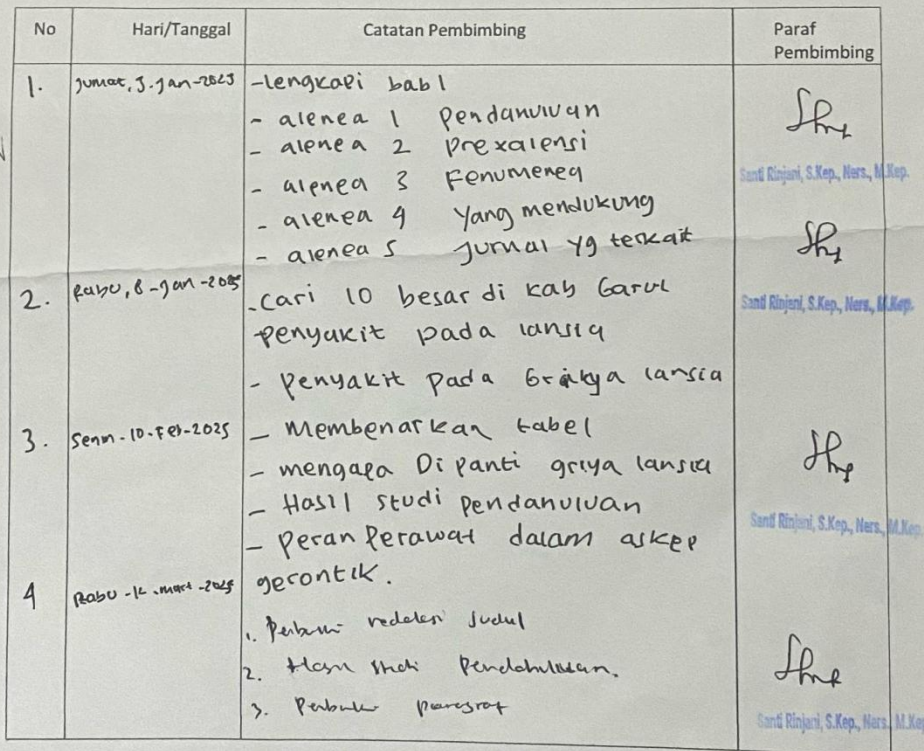 No Hari/Tanggal Catatan Pembimbing Paraf Pembimbing
1. Jumat, 3-Jan-2023 -lengkapi bab 1
- alenea 1 Pendanuluan
- alenea 2 prevalensi
- alenea 3 Fenumenea
- alenea 4 Yang mendukung
- alenea 5 Jurnal yg terkait
Santi Rinjani, S.Kep., Ners., M.Kep.
2. Rabu, 8-Jan-2025 -Cari 10 besar di kab Garut
penyakit pada lansia
- Penyakit pada Griya lansia
Santi Rinjani, S.Kep., Ners., M.Kep.
3. Senin-10-Feb-2025 - Membenarkan tabel
- mengapa Di panti griya lansia
- Hasil studi pendanuluan
- peran perawat dalam askep
gerontik.
Santi Rinjani, S.Kep., Ners., M.Kep.
4 Rabu-12-mart-2025
1. Perbaiki redaksi judul
2. Hasil studi Pendahuluan.
3. Perbaiki paragraf
Santi Rinjani, S.Kep., Ners., M.Kep